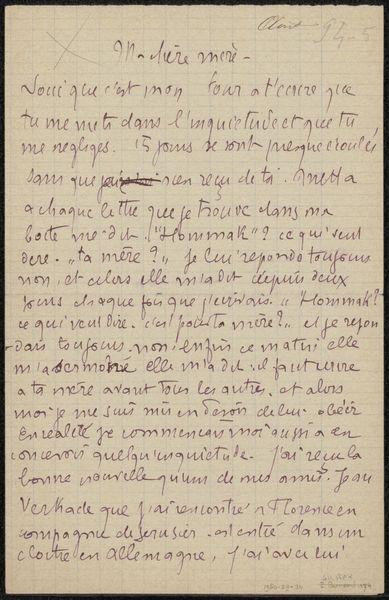 Août 94-5
Ma chère mère -
Voici que c'est mon tour à t'écrire que
tu me mets dans l'inquiétude et que tu
me négliges. 15 jours se sont presque écoulés
sans que rien reçu de toi.
à chaque lettre que je trouve dans ma
boîte me dit. "Hommak"? ce qui veut
dire. "ta mère?" Je lui réponds toujours
non, et alors elle m'a dit depuis deux
jours chaque fois que j'écrivais. "Hommak?"
ce qui veut dire. c'est pour ta mère?" et je répon-
dais toujours. non. enfin ce matin elle
m'a sermoné elle m'a dit. il faut écrire
à ta mère avant tous les autres. et alors
moi je me suis mis en devoir de lui obéir
En réalité je commençais moi aussi à en
concevoir quelqu'inquiétude. J'ai reçu la
bonne nouvelle qu'un de mes amis. Jean
Verkade que j'ai rencontré à Florence en
compagnie de Serusier. est entré dans un
cloître en Allemagne, j'ai avec lui